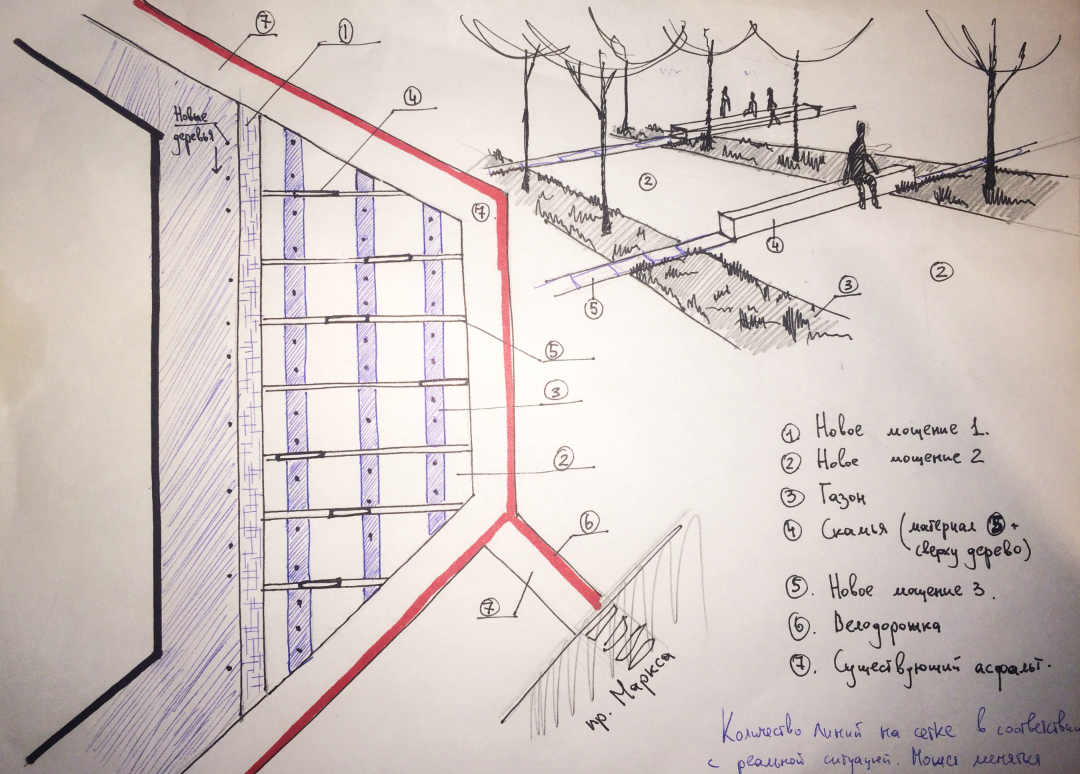 7
1
4
Новые
деревья
7
2
4
2
3
5
5
3
2
6
7
пр. Маркса
1 Новое мощение 1.
2 Новое мощение 2
3 Газон
4 Скамья (материал 5 +
сверху дерево)
5. Новое мощение 3.
6. Велодорожка
7. Существующий асфальт.
Количество линий на сетке в соответствии
с реальной ситуацией. Может меняться